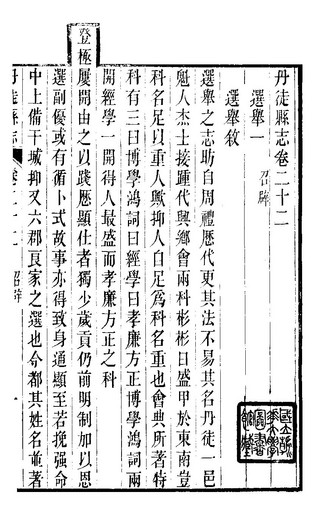 丹徒縣志卷二十二
選舉一 召辟
選舉敘
選舉之志昉自周禮歷代更其法不易其名丹徒一邑
魁人杰士接踵代興鄉會兩科彬彬日盛甲於東南豈
科名足以重人歟抑人自足為科名重也會典所著特
科有三曰博學鴻詞曰經學曰孝廉方正博學鴻詞兩
開經學一開得人最盛而孝廉方正之科
登極
屢開由之以踐歷顯仕者獨少歲貢仍前明制加以恩
選副優或有循卜式故事亦得致身通顯至若挽强命
中上備干城抑又六郡良家之選也今都其姓名並著
丹徒縣志 卷二十二 召辟 一